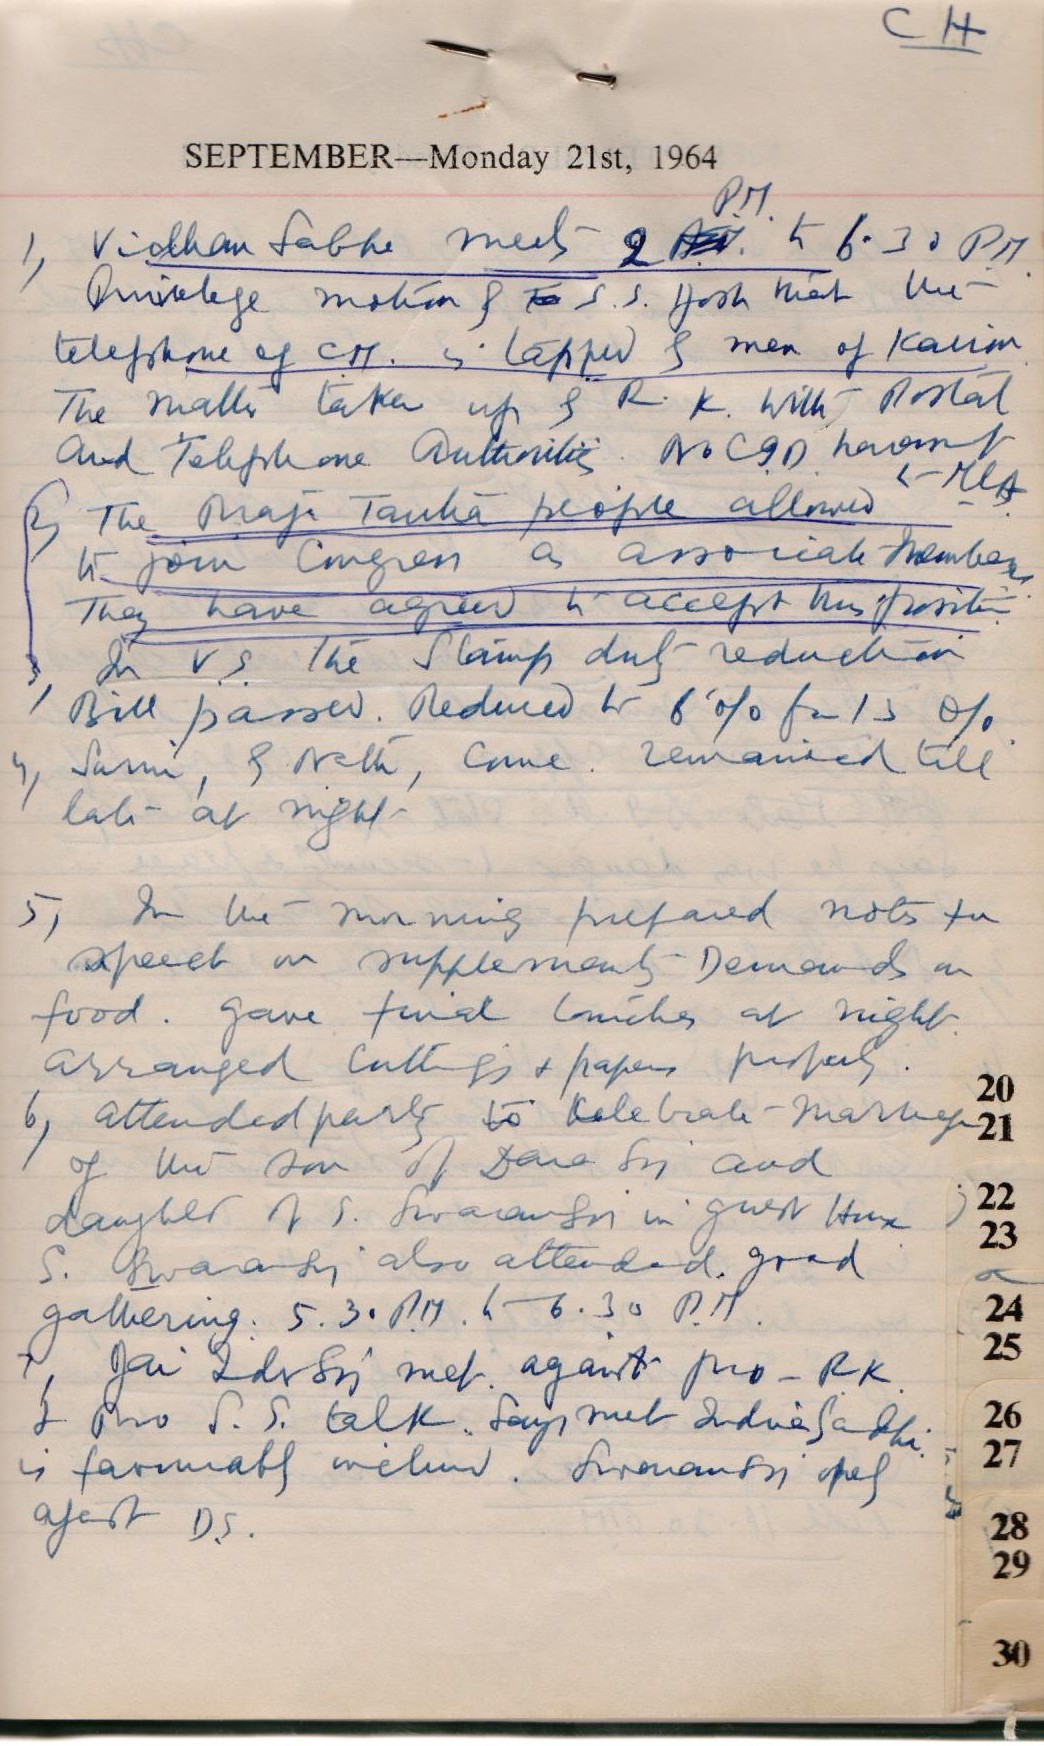 CH
SEPTEMBER—Monday 21st, 1964
P.M.
1, Vidhan Sabha meets 2 to 6.30 P.M.
Privilege motion by S.S. Josh that the
telephone of CM. is tapped by men of Kairon
The matter taken up by R. K. with Postal
and Telephone Authorities. No CID
MLA
2, The Praja people allowed
to join Congress as associate members
They have agreed to accept this position
3, In V.S. the Stamp duty reduction
Bill passed. Reduced to 6% from 13 %.
4, , & , come. remained till
late at night
5, In the morning prepared notes for
speech on supplementary Demands on
food. gave final touches at night.
arranged cuttings + papers properly.
6, attended party to celebrate marriage
of the son of Dara Sj and
daughter of S. Swaran Sj in guest House
S. Swaran Sj also attended. good
gathering. 5.30 P.M. to 6.30 P.M.
7, Jai Sj met. against pro - RK.
& pro S. S. talk. Says met Indira Gandhi.
is favourably inclined. Swaran Sj openly
against D.S.
20
21
22
23
24
25
26
27
28
29
30